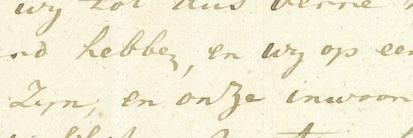 wy tot dus verre
nd hebbe, en wy op een
Zyn, en onze inwoon